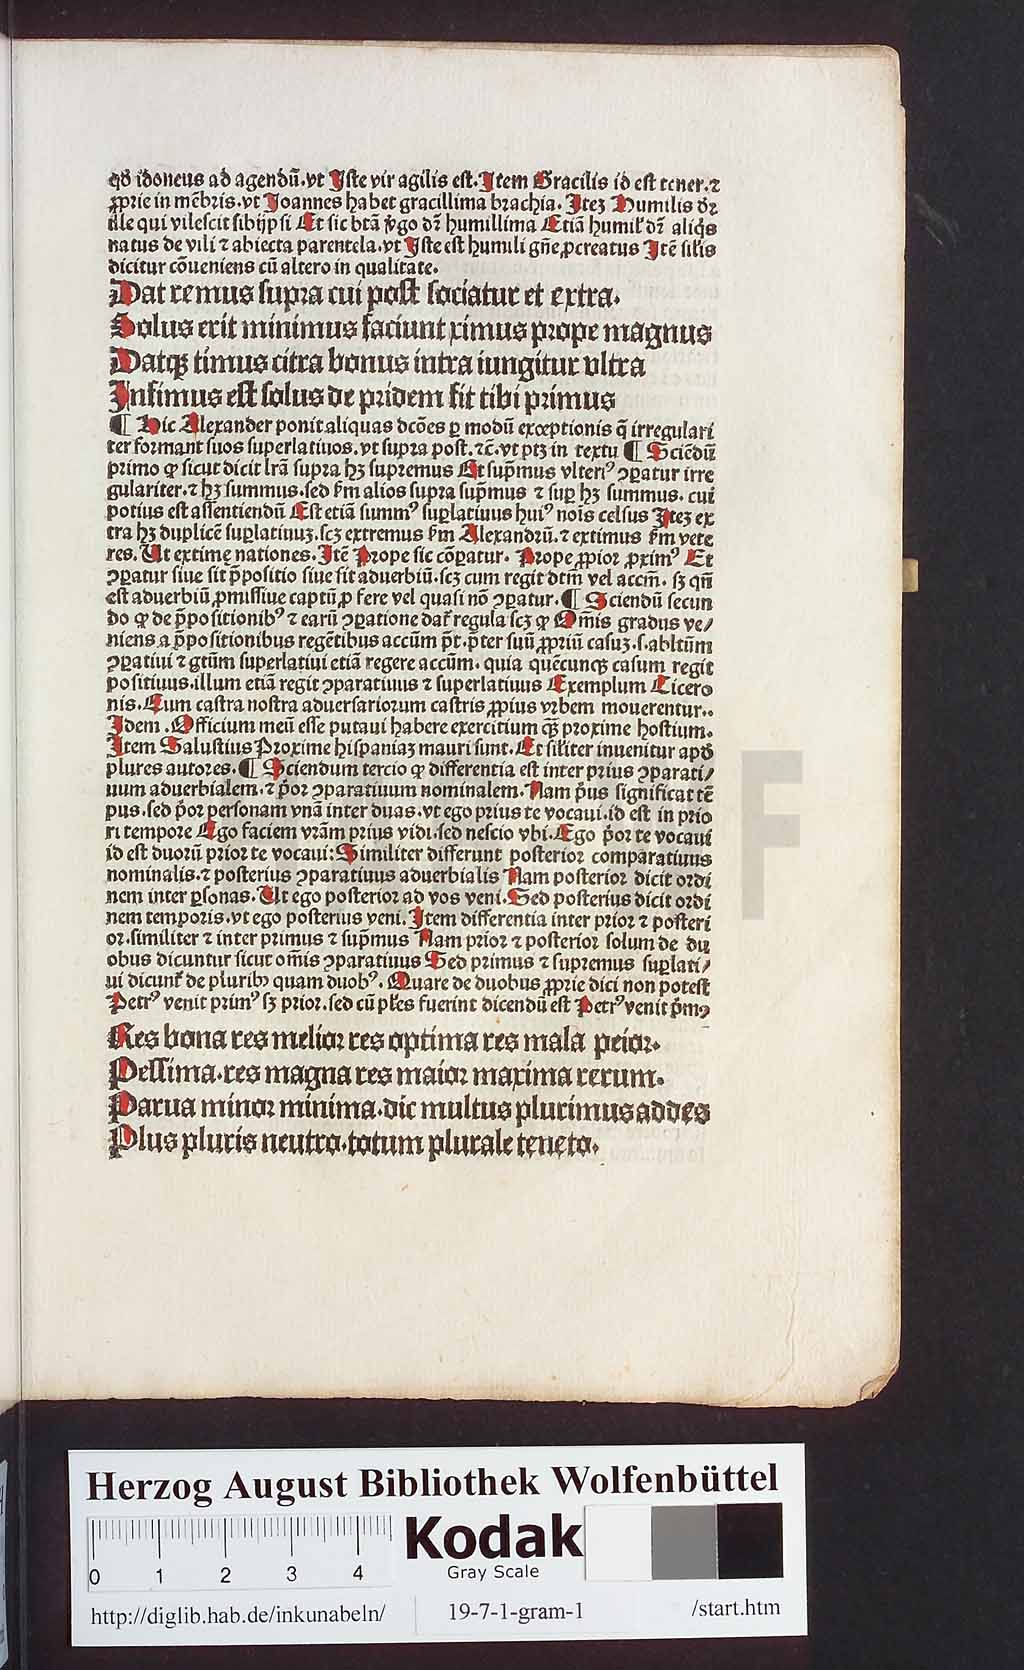 qđ idoneus ad agendū.vt Iste vir agilis est.Item Gracilis id est tener.⁊
ꝓprie in mēbris.vt Joannes habet gracillima brachia. Itez Humilis dr̄
ille qui vilescit sibijpsi Et sic btā v̓go dr̄ humillima Etiā humil̓ dr̄ aliqs̓
natus de vili ⁊ abiecta parentela.vt Iste est humili gn̄e ꝓcreatus Itē sil̓is
dicitur cōueniens cū altero in qualitate.
Dat remus supra cui post sociatur et extra.
Solus erit minimus faciunt ximus prope magnus
Datqꝫ timus citra bonus intra iungitur vltra
Infimus est solus de pridem fit tibi primus
¶ Hic Alexander ponit aliquas dcōes ꝑ modū exceptionis q̄ irregulari
ter formant suos superlatiuos.vt supra post.⁊c̄.vt ptꝫ in textu ¶ Sciēdū
primo ꝙ sicut dicit lrā supra hꝫ supremus Et sup̄mus vlteri⁹ ꝯꝑatur irre
gulariter.⁊ hꝫ summus.sed ẜm alios supra sup̄mus ⁊ suꝑ hꝫ summus. cui
potius est assentiendū Est etiā summ⁹ suꝑlatiuus hui⁹ nois̄ celsus Itez ex
tra hꝫ duplicē suꝑlatiuuꝫ.scꝫ extremus ẜm Alexandrū.⁊ extimus ẜm vete
res. Ut extime nationes.Itē Prope sic cōꝑatur. Prope ꝓpior ꝓxim⁹ Et
ꝯꝑatur siue sit p̄positio siue sit aduerbiū.scꝫ cum regit dtm̄ vel accm̄. sꝫ qn̄
est aduerbiū ꝓmissiue captū ꝓ fere vel quasi nō ꝯꝑatur.¶ Sciendū secun
do ꝙ de p̄positionib⁹ ⁊ earū ꝯꝑatione dat̓ regula scꝫ ꝙ Om̄is gradus ve/
niens a p̄positionibus regētibus accūm p̄t.p̄ter suū ꝓpriū casuꝫ.s.abltūm
ꝯꝑatiui ⁊ gtūm superlatiui etiā regere accūm. quia quēcunqꝫ casum regit
positiuus.illum etiā regit ꝯparatiuus ⁊ superlatiuus Exemplum Cicero
nis.Cum castra nostra aduersariorum castris ꝓpius vrbem mouerentur..
Idem .Officium meū esse putaui habere exercitium qꝫ̄ proxime hostium.
Item Salustius Proxime hispaniaꝫ mauri sunt.Et sil̓iter inuenitur apđ
plures autores.¶ Sciendum tercio ꝙ differentia est inter prius ꝯparati/
uum aduerbialem.⁊ p̓or ꝯparatiuum nominalem.Nam p̓us significat tē
pus.sed p̓or personam vnā inter duas.vt ego prius te vocaui.id est in prio
ri tempore Ego faciem vr̄am prius vidi.sed nescio vbi.Ego p̓or te vocaui
id est duorū prior te vocaui:Similiter differunt posterior comparatiuus
nominalis.⁊ posterius ꝯparatiuus aduerbialis Nam posterior dicit ordi
nem inter ꝑsonas. Ut ego posterior ad vos veni.Sed posterius dicit ordi
nem temporis.vt ego posterius veni.Item differentia inter prior ⁊ posteri
or.similiter ⁊ inter primus ⁊ sup̄mus Nam prior ⁊ posterior solum de du
obus dicuntur sicut om̄is ꝯparatiuus Sed primus ⁊ supremus suꝑlati/
ui dicunt̓ de plurib⁹ quam duob⁹. Quare de duobus ꝓprie dici non potest
Petr⁹ venit prim⁹ sꝫ prior.sed cū pl̓es fuerint dicendū est Petr⁹ venit p̓m⁹
Res bona res melior res optima res mala peior.
Pessima.res magna res maior maxima rerum.
Parua minor minima.dic multus plurimus addes
Plus pluris neutro.totum plurale teneto.
Herzog August Bibliothek Wolfenbüttel
Kodak
Gray Scale
0 1 2 3 4
http://diglib.hab.de/inkunabeln/ 19-7-1-gram-1 /start.htm